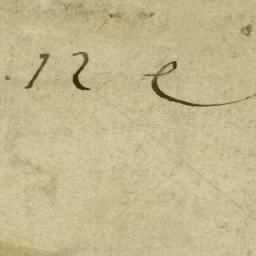 .12 e